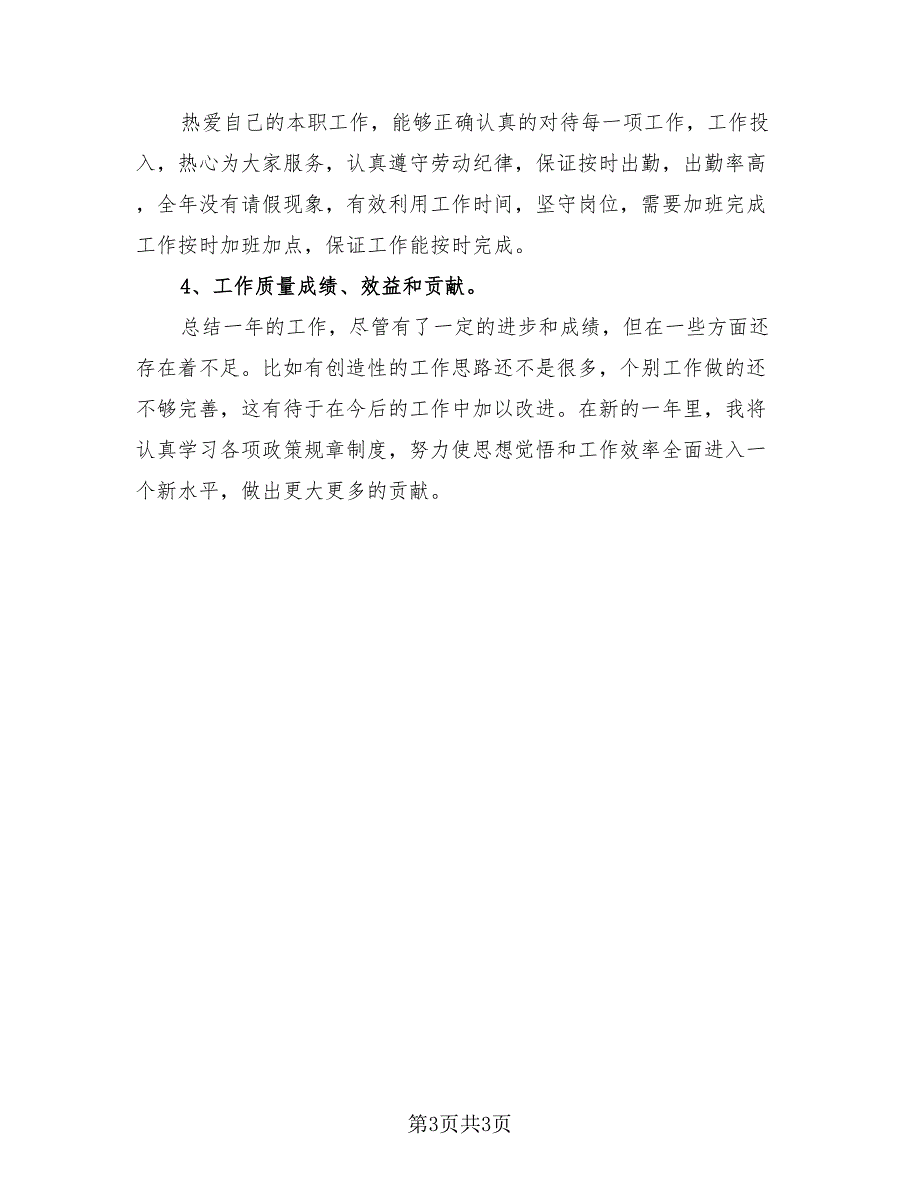 热爱自己的本职工作，能够正确认真的对待每一项工作，工作投
入，热心为大家服务，认真遵守劳动纪律，保证按时出勤，出勤率高
，全年没有请假现象，有效利用工作时间，坚守岗位，需要加班完成
工作按时加班加点，保证工作能按时完成。
4、工作质量成绩、效益和贡献。
总结一年的工作，尽管有了一定的进步和成绩，但在一些方面还
存在着不足。比如有创造性的工作思路还不是很多，个别工作做的还
不够完善，这有待于在今后的工作中加以改进。在新的一年里，我将
认真学习各项政策规章制度，努力使思想觉悟和工作效率全面进入一
个新水平，做出更大更多的贡献。
第3页共3页